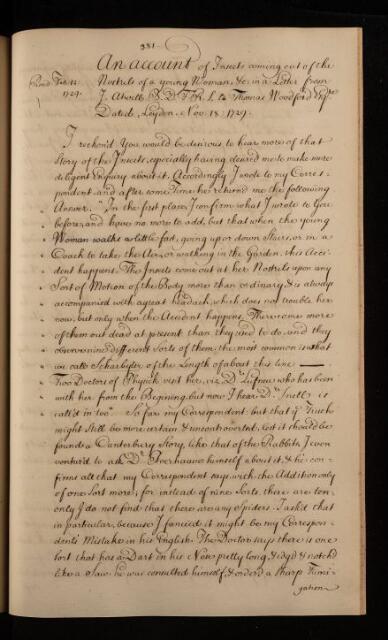 331
An account of Insects coming out of the
Nostrils of a young Woman, &c: in a Letter from
J. Atwell, B.D. F.R.S. to Thomas Woodford Esqr
Dated, Leyden, Nov. 18. 1729.
Read Feb. 12.
1729.
I reckon'd You would be desirous to hear more of that
Story of the Insects, especially having desired me to make more
diligent Enquiry about it. Accordingly I wrote to my Corres-
pondent, and after some Time he return'd me the following
Answer. "In the first place, I confirm what I wrote to You
before, and have no more to add, but that when the young
Woman walks a little fast, going up or down Stairs, or in a
Coach to take the Air, or walking in the Garden, this Acci-
dent happens. The Insects come out at her Nostrils upon any
Sort of Motion of the Body more than ordinary, & is always
accompanied with a great headach, which does not trouble her
now, but only when the Accident happens. There come more
of them out dead at present than they used to do, and they
observe nine different Sorts of them; the most common is what
we call Scharbyter of the Length of about this line —
Two Doctors of Physick visit her, viz. Dr. who has been
with her from the Begining, but now I hear Dr. is
call'd in too". So far my Correspondent; but that ye Truth
might still be more certain & uncontroverted, lest it should be
found a Canterbury Story, like that of the Rabbits, I even
ventur'd to ask Dr. Boerhaave himself about it, & he con-
firms all that my Correspondent says, with the Addition only
of one Sort more; for instead of nine Sorts, there are ten,
only I do not find that there are any Spiders. I ask'd that
in particular, because I fancied it might be my Correspon-
dents Mistake in his English. The Doctor says there is one
Sort that has a Dart in his Nose pretty long, & edg'd & notch'd
like a Saw. he was consulted himself, & order'd a sharp Fumi-
gation